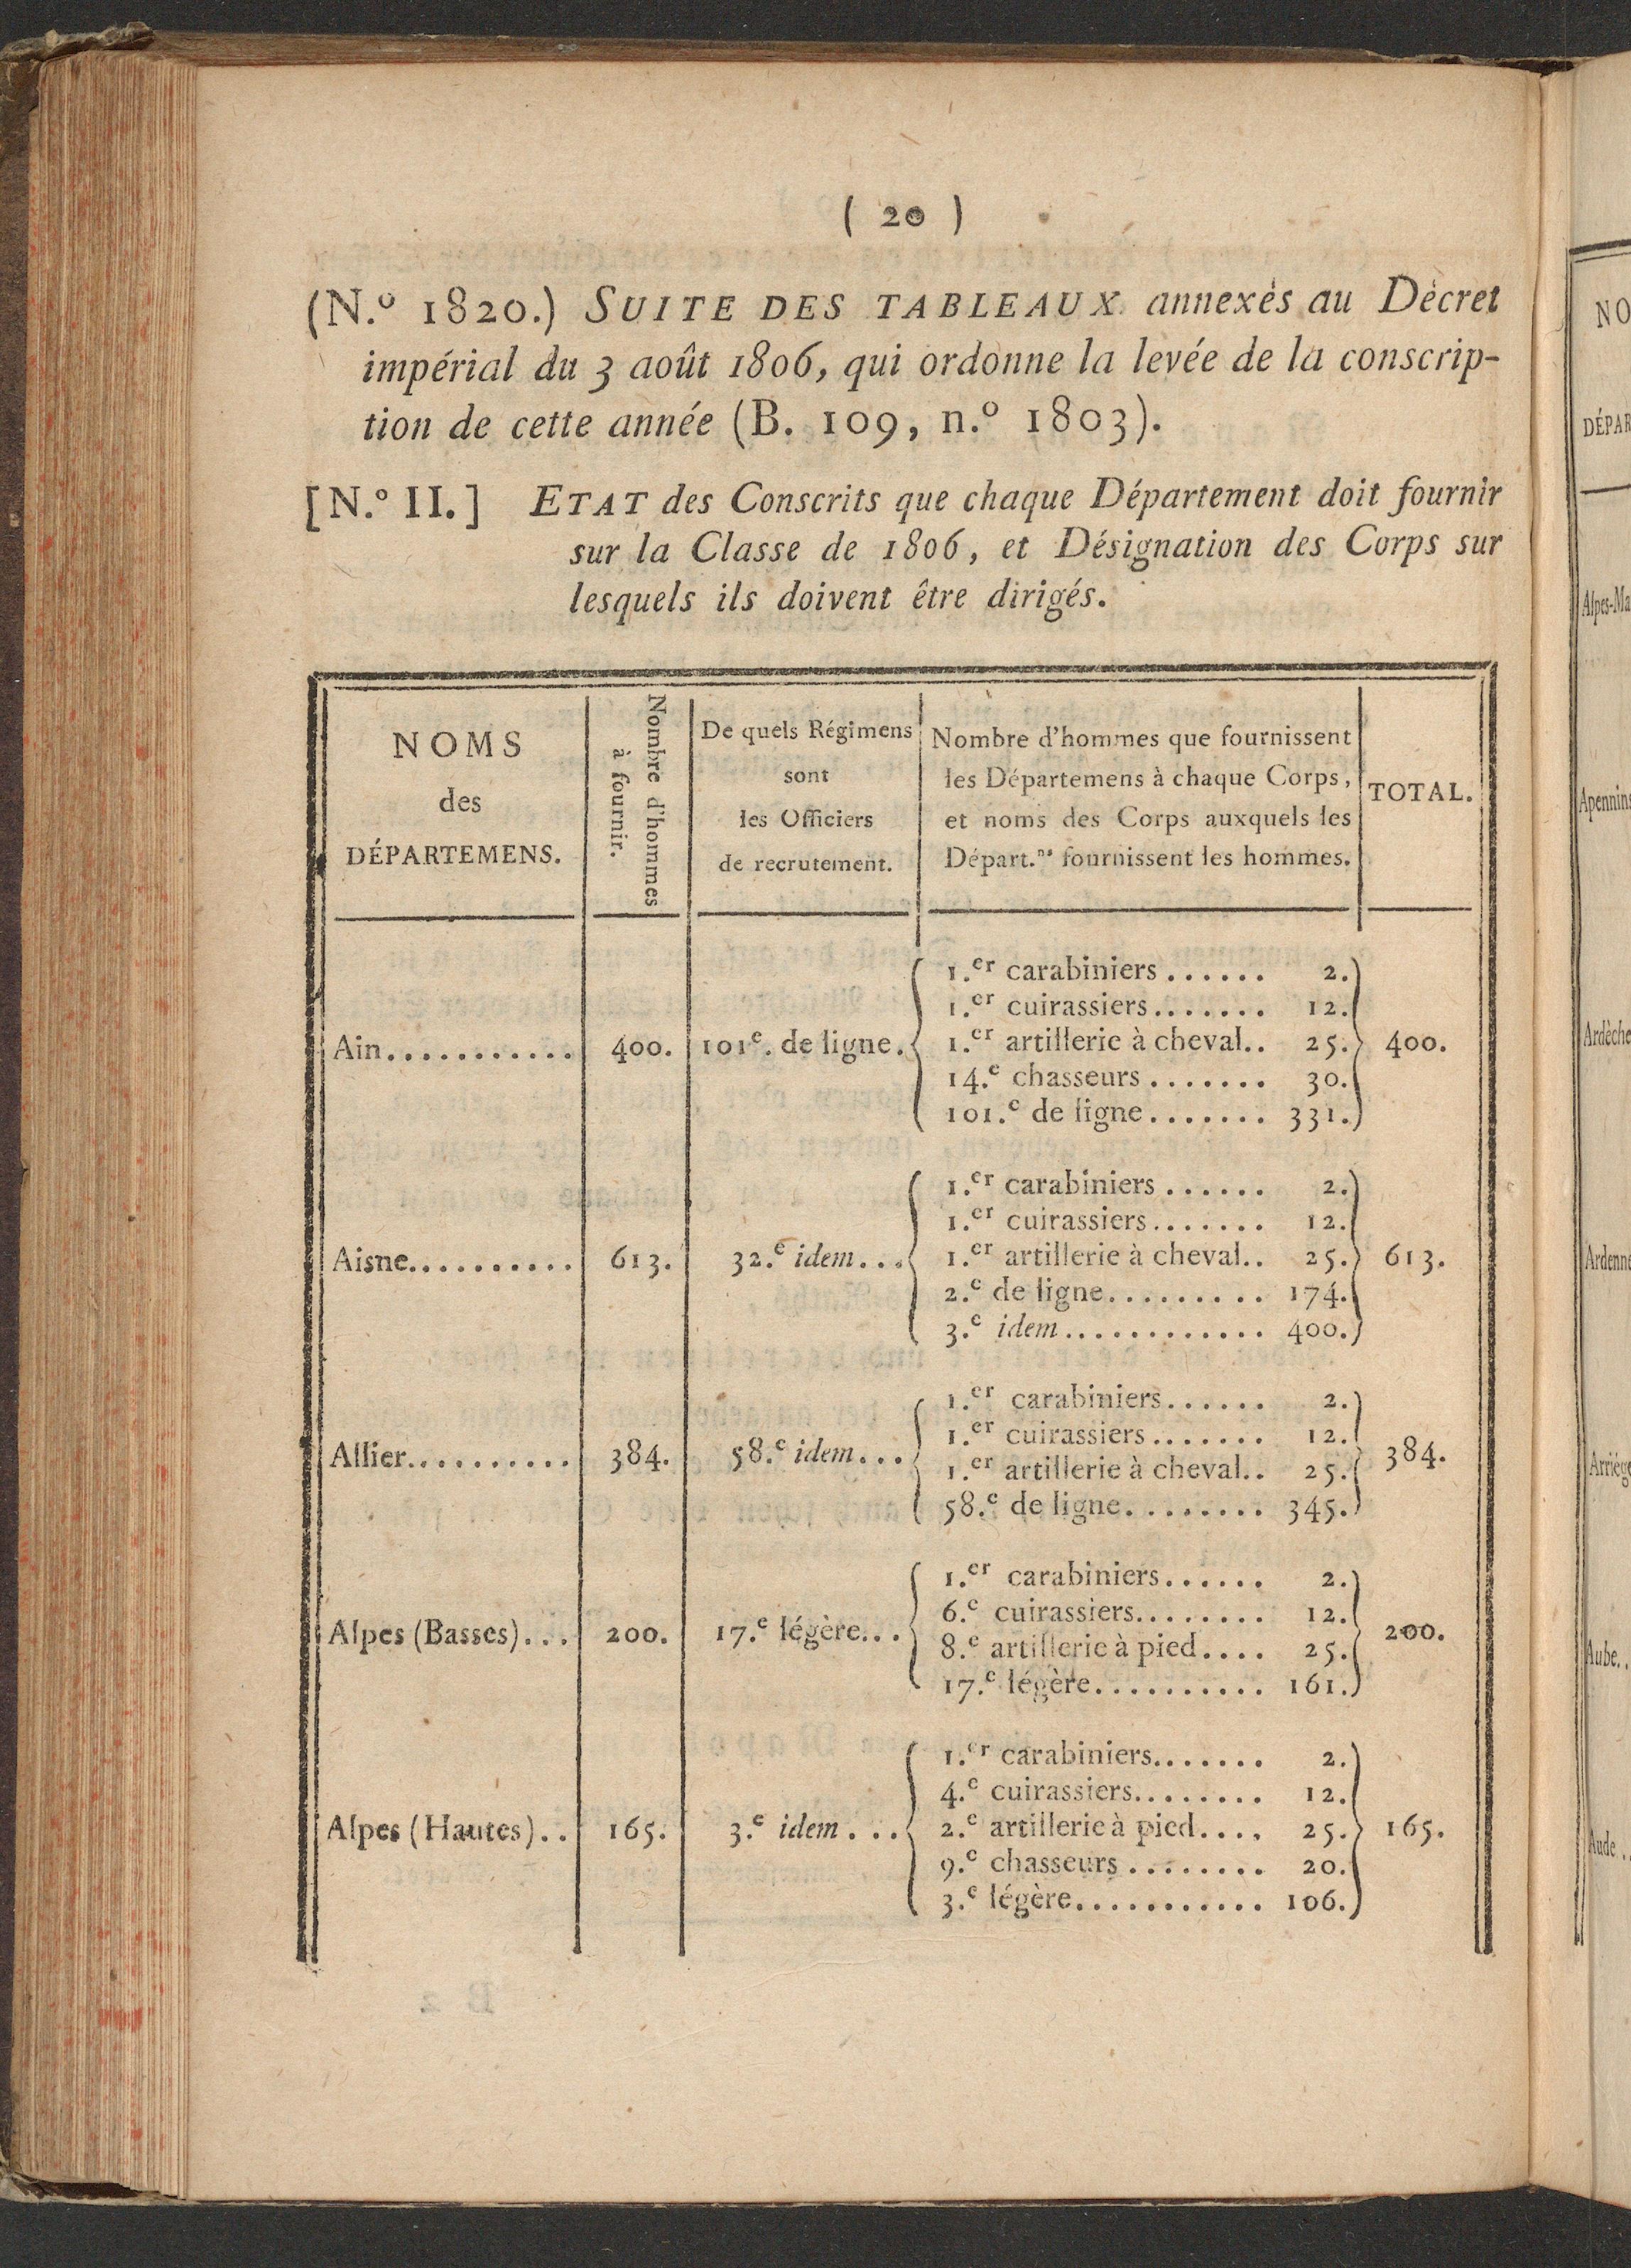 ( 20 )
(N.º 1820.) SUITE DES TABLEAUX annexés au Décret
impérial du 3 août 1806, qui ordonne la levée de la conscrip-
tion de cette année (B. 109, n.º 1803).
[N.º II.] ETAT des Conscrits que chaque Département doit fournir
sur la Classe de 1806, et Désignation des Corps sur
lesquels ils doivent être dirigés.
NOMS
des
DÉPARTEMENS.
Nombre d'hommes
à fournir.
De quels Régimens
sont
les Officiers
de recrutement.
Nombre d'hommes que fournissent
les Départemens à chaque Corps,
et noms des Corps auxquels les
Départ.ns fournissent les hommes.
TOTAL.
Ain........... 400. 101e. de ligne. 400.
1.er carabiniers...... 2.
1.er cuirassiers....... 12.
1.er artillerie à cheval.. 25.
14.e chasseurs....... 30.
101.e de ligne....... 331.
Aisne.......... 613. 32.e idem... 613.
1.er carabiniers...... 2.
1.er cuirassiers....... 12.
1.er artillerie à cheval.. 25.
2.e de ligne......... 174.
3.e idem............ 400.
Allier.......... 384. 58.e idem... 384.
1.er carabiniers...... 2.
1.er cuirassiers....... 12.
1.er artillerie à cheval.. 25.
58.e de ligne........ 345.
Alpes (Basses)... 200. 17.e légère... 200.
1.er carabiniers...... 2.
6.e cuirassiers........ 12.
8.e artillerie à pied.... 25.
17.e légère.......... 161.
Alpes (Hautes).. 165. 3.e idem... 165.
1.er carabiniers....... 2.
4.e cuirassiers........ 12.
2.e artillerie à pied.... 25.
9.e chasseurs........ 20.
3.e légère........... 106.
NO
DÉPAR
Alpes-Ma
Apennins
Ardèche
Ardenne
Arriége
Aube..
Aude..